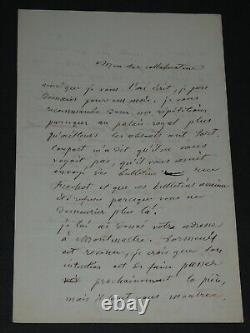 Mon cher collaborateur
ainsi que je vous l'ai écrit, je pars
demain pour un mois. Je vous
recommande donc nos répétitions
parceque au palais royal plus
qu'ailleurs les absents ont tort.
m'a écrit qu'il vous
voyait pas, qu'il vous avait
envoyé des bulletins chez
et que ces bulletins
refusés parceque vous ne
demeuriez plus là.
je lui ai donné votre adresse
à Montmartre.
est revenu, je crois que son
intention est de faire passer
prochainement la pièce,
mais il faut que